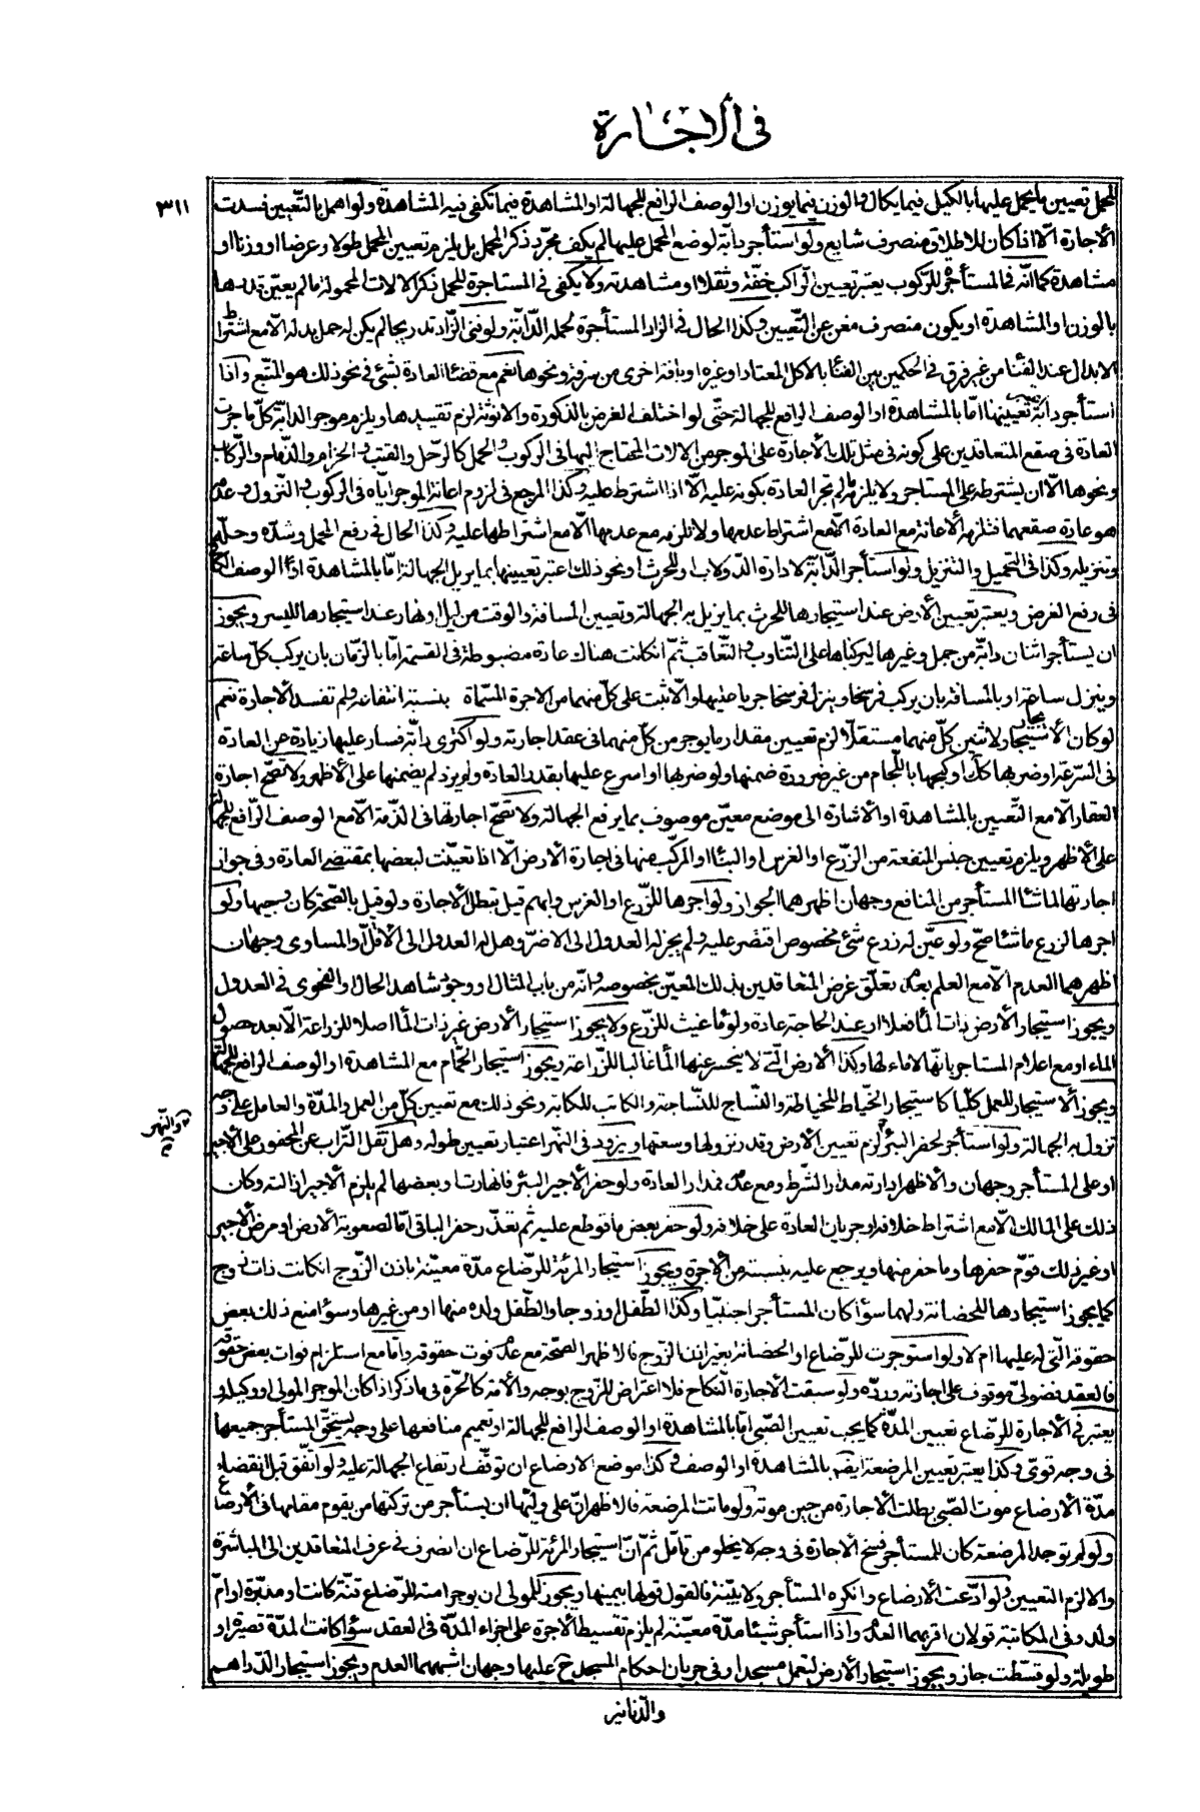 في الاجارة
٣١١
للحمل تعيين ما يحمل عليها بالكيل فيما يكال والوزن فيما يوزن او الوصف الرافع للجهالة او المشاهدة فيما تكفى فيه المشاهدة ولو اهمل بالتّعيين فسدت
الاجارة الّا اذا كان للاطلاق منصرف شايع ولو استأجر دابّة لوضع المحمل عليها لم يكف مجرّد ذكر المحمل بل يلزم تعيين المحمل طولا وعرضا او وزنا او
مشاهدة كما انّه فى المستأجرة للركوب يعتبر تعيين الرّاكب خفّة وثقلا او مشاهدته ولا يكفى فى المستاجرة للحمل ذكر الالات المحمولة ما لم يعيّن قدرها
بالوزن او المشاهدة او يكون منصرف مغن عن التّعيين وكذا الحال فى الزاد المستأجرة لحمله الدّابّة ولو فنى الزّاد تدريجا لم يكن له حمل بدله الّا مع اشتراط
الابدال عند الفنا من غير فرق فى الحكمين بين الفنا بالاكل المعتاد او غيره او بافة اخرى من سرقة ونحوها نعم مع قضاء العادة بشئ فى نحو ذلك هو المتّبع واذا
استأجر دابّة تعيينها امّا بالمشاهدة او الوصف الرافع للجهالة حتّى لو اختلف الغرض بالذكورة والانوثة لزم تقييدها ويلزم موجر الدابّة كلّ ما جرت
العادة فى صقع المتعاقدين على كونه فى مثل تلك الاجارة على الموجر من الالات المحتاج اليها فى الركوب والحمل كالرّحل والقتب والحزام والزّمام والرّكاب
ونحوها الّا ان يشترطه على المستاجر ولا يلزمه ما لم تجر العادة بكونه عليه الّا اذا اشترط عليه وكذا المرجع فى لزوم اعانة الموجر ايّاه فى الركوب والنّزول وعدمه
هو عادة صقعهما فتلزم الاعانة مع العادة الّا مع اشتراط عدمها ولا تلزم مع عدمها الّا مع اشتراطها عليه وكذا الحال فى رفع المحمل وشدّه وحلّه
وتنزيله وكذا فى التحميل والتنزيل ولو استأجر الدّابّة لادارة الدّولاب او للحرث او نحو ذلك اعتبر تعيينها بما يزيل الجهالة امّا بالمشاهدة او الوصف
فى رفع الغرض ويعتبر تعيين الارض عند استيجارها للحرث بما يزيل به الجهالة وتعيين المسافة والوقت من ليل او نهار عند استيجارها للسير ويجوز
ان يستأجر اثنان دابّة من جمل وغيرها ليركباها على التّناوب والتّعاقب ثمّ ان كانت هناك عادة مضبوطة فى القسمة امّا بالزّمان بان يركب كلّ ساعة
وينزل ساعة او بالمسافة بان يركب فرسخا وينزل فرسخا جريا عليها والّا ثبت على كلّ منهما من الاجرة المسمّاة بنسبة انتفاعه ولم تفسد الاجارة نعم
لو كان الاستيجار لاثنين كلّ منهما مستقلّا لزم تعيين مقدار ما يوجر من كلّ منهما فى عقد اجارته ولو اكترى دابّة فسار عليها زيادة عن العادة
فى السّرعة او ضربها كك او كبحها باللّجام من غير ضرورة ضمنها ولو ضربها او اسرع عليها بقدر العادة ولم يزد لم يضمنها على الاظهر ولا تصحّ اجارة
العقار الّا مع التّعيين بالمشاهدة او الاشارة الى موضع معيّن موصوف بما يرفع الجهالة ولا تصحّ اجارتها فى الذّمة الّا مع الوصف الرّافع للجهالة
على الاظهر ويلزم تعيين جنس المنفعة من الزّرع او الغرس او البناء او المركّب منها فى اجارة الارض الّا اذا تعيّنت لبعضها بمقتضى العادة وفى جواز
اجارتها لما شاء المستأجر من المنافع وجهان اظهرهما الجواز ولو اجرها للزّرع او الغرس وابهم قيل تبطل الاجارة ولو قيل بالصّحة كان وجيها ولو
اجرها لزرع ما شاء صحّ ولو عيّن له زرع شئ مخصوص اقتصر عليه ولم يجز له العدول الى الاضرّ وهل له العدول الى الاقلّ والمساوى وجهان
اظهرهما العدم الّا مع العلم بعدم تعلّق غرض المتعاقدين بذلك المعيّن بخصوصه وانّه من باب المثال او وجود شاهد الحال والفحوى فى العدول
ويجوز استيجار الارض ذات الماء فعلا او عند الحاجة عادة ولو ماء غيث للزّرع ولا يجوز استيجار الارض غير ذات الماء اصلا للزراعة الّا بعد حصول
الماء او مع اعلام المستاجر بانّها لا ماء لها وكذا الارض الّتى لا ينحسر عنها الماء غالبا للزّراعة ويجوز استيجار الحمّام مع المشاهدة او الوصف الرافع للجهالة
ويجوز الاستيجار للعمل كلّيا كاستيجار الخيّاط للخياطة والنسّاج للنّساجة والكاتب للكتابة ونحو ذلك مع تعيين كلّ من العمل والمدّة والعامل على وجه
تزول به الجهالة ولو استأجر لحفر البئر لزم تعيين الارض وقدر نزولها وسعتها ويزيد فى النّهر اعتبار تعيين طوله وهل نقل التّراب عن المحفور على الاجير
او النّهر
او على المستأجر وجهان والاظهر ادارته مدار الشّرط ومع عدمه فمدار العادة ولو حفر الاجير البئر فانهارت او بعضها لم يلزم الاجير ازالته وكان
ذلك على المالك الّا مع اشتراط خلافه او جريان العادة على خلافه ولو حفر بعض ما قوطع عليه ثم تعذّر حفر الباقى امّا لصعوبة الارض او مرض الاجير
او غير ذلك قوّم حفرها وما حفر منها ويرجع عليه بنسبته من الاجرة ويجوز استيجار المرئة للرّضاع مدّة معيّنة باذن الزّوج ان كانت ذات زوج
كما يجوز استيجارها للحضانة ولهما سواء كان المستأجر اجنبيّا وكذا الطّفل او زوجا والطّفل ولده منها او من غيرها وسواء منع ذلك بعض
حقوقه الّتى له عليها ام لا ولو استوجرت للرّضاع او الحضانة بغير اذن الزّوج فالاظهر الصّحة مع عدم فوت حقوقه وامّا مع استلزام فوات بعض حقوقه
فالعقد فضولىّ موقوف على اجازته وردّه ولو سبقت الاجارة النّكاح فلا اعتراض للزّوج بوجه والامة كالحرّة فى ما ذكر اذا كان الموجر المولى او وكيله و
يعتبر فى الاجارة للرّضاع تعيين المدّة كما يجب تعيين الصّبى امّا بالمشاهدة او الوصف الرافع للجهالة او تعميم منافعها على وجه يستحقّ المستأجر جميعها
فى وجه قوىّ وكذا يعتبر تعيين المرضعة ايضا بالمشاهدة او الوصف وكذا موضع الارضاع ان توقّف ارتفاع الجهالة عليه ولو اتّفق قبل انقضاء
مدّة الارضاع موت الصّبى بطلت الاجارة من حين موته ولو ماتت المرضعة فالاظهر انّ على وليّها ان يستأجر من تركتها من يقوم مقامها فى الارضاع
ولو لم توجد المرضعة كان للمستأجر فسخ الاجارة فى وجه لا يخلو من تأمّل ثمّ انّ استيجار المرئة للرّضاع ان انصرف فى عرف المتعاقدين الى المباشرة
والا لزم التعيين ولو ادّعت الارضاع وانكره المستأجر ولا بيّنة فالقول قولها بيمينها ويجوز للمولى ان يوجر امته للرّضاع قنّة كانت او مدبّرة او امّ
ولد وفى المكاتبة قولان اقربهما العدم واذا استأجر شيئا مدّة معيّنة لم يلزم تقسيط الاجرة على اجزاء المدّة فى العقد سواء كانت المدّة قصيرة او
طويلة ولو قسّطت جاز ويجوز استيجار الارض لتعمل مسجدا وفى جريان احكام المسجد ح عليها وجهان اشبههما العدم ويجوز استيجار الدّراهم
والدّنانير